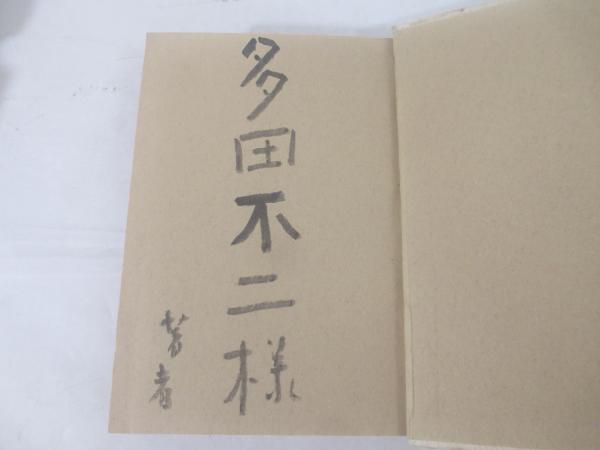 多田不二様
著者